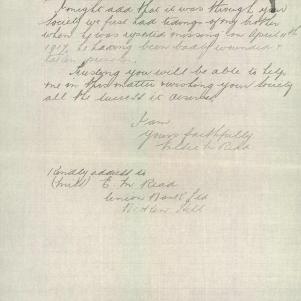 I might add that it was through your
Society we first had tidings of my brother
when he was reported missing on April 11th
1917, he having been badly wounded &
taken prisoner.
Trusting you will be able to help
me in this matter & wishing your Society
all the success it deserves
I am
Yours faithfully
Read
Kindly address to
(Miss) E. M Read
Union Bank Ltd